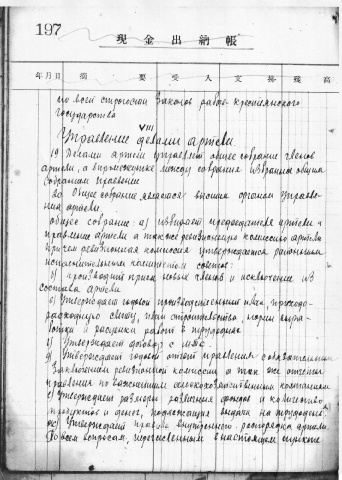 197
現金出納帳
年月日 摘要 受入 支拂 残高
по всей строгости Законов рабоче-крестьянского
государства
VIII
Управление делами артели.
19 Делами артели управляет общее собрание членов
артели, а в промежутке между собрания избранным общим
собранием правление
20 Общее собрание является высшим органом управле-
ния артели
общее собрание а) избирает председателя артели и
правление артели а также ревизионную комиссию артели
причем ревизионная комиссия утверждается районным
исполнительным комитетом советов:
б) производит прием новых членов и исключение из
состава артели
в) Утверждает годовой производственный план, приходо-
расходную смету, план строительства, нормы выра-
ботки и расценки работ в трудоднях
г) Утверждает договор с МТС.
д) Утверждает годовой отчет правления с
Заключением ревизионной комиссии а так же отчеты
правления по важнейшим сельскохозяйственным кампаниям
е) Утверждает размеры различных фондов и количество
продуктов и денег, подлежащих выдачи на трудодень
ж) Утверждает правила внутреннего распорядка артели.
По всем вопросам, перечисленным в настоящем пункте